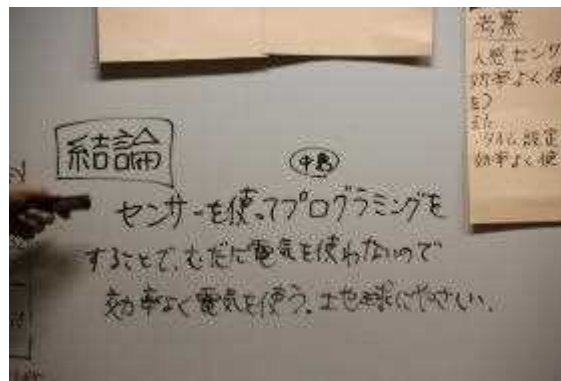 結論
中島
センサーを使ってプログラミングを
することで、むだに電気を使わないので
効率よく電気を使う。土地球にやさしい。
考察
人感センサ
効率よく使
を?
また
タイム設定
効率よく使